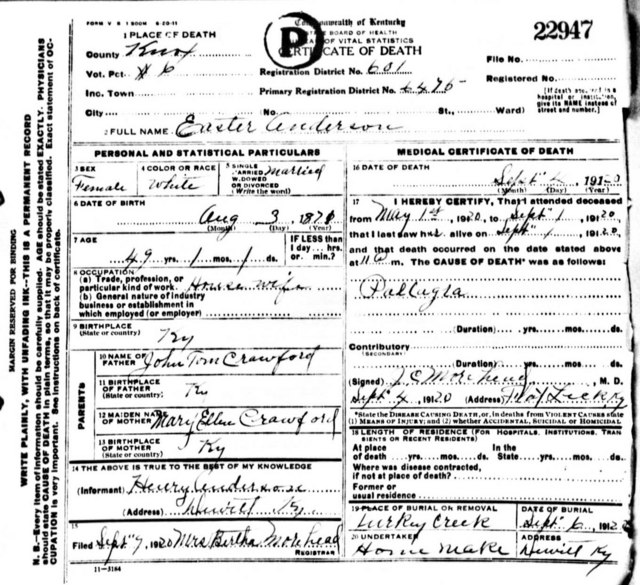 FORM V S 1 500M 6-20-11
Commonwealth of Kentucky
STATE BOARD OF HEALTH
BUREAU OF VITAL STATISTICS
CERTIFICATE OF DEATH
P
22947
1 PLACE OF DEATH
County Knox
Vot. Pct. #6
Inc. Town
City
No.
St., Ward)
Registration District No. 601
Primary Registration District No. 6475
File No.
Registered No.
[If death occurred in a hospital or institution, give its NAME instead of street and number.]
2 FULL NAME Easter Anderson
PERSONAL AND STATISTICAL PARTICULARS
3 SEX
Female
4 COLOR OR RACE
White
5 SINGLE MARRIED WIDOWED OR DIVORCED (Write the word)
Married
6 DATE OF BIRTH
Aug 3, 1871
(Month) (Day) (Year)
7 AGE
49 yrs. 1 mos. 1 ds.
IF LESS than 1 day... hrs. or... min.?
8 OCCUPATION
(a) Trade, profession, or particular kind of work. House wife
(b) General nature of industry business or establishment in which employed (or employer)
9 BIRTHPLACE
(State or country) Ky
PARENTS
10 NAME OF FATHER John Tom Crawford
11 BIRTHPLACE OF FATHER (State or country) Ky
12 MAIDEN NAME OF MOTHER Mary Ellen Crawford
13 BIRTHPLACE OF MOTHER (State or country) Ky
14 THE ABOVE IS TRUE TO THE BEST OF MY KNOWLEDGE
(Informant) Henry Anderson
(Address) Hewitt Ky.
15
Filed Sept 7, 1920 Mrs Bertha Morehead
REGISTRAR
11-3184
MEDICAL CERTIFICATE OF DEATH
16 DATE OF DEATH
Sept 1920
(Month) (Day) (Year)
17 I HEREBY CERTIFY, That I attended deceased
from May 1st, 1920, to Sept 1, 1920,
that I last saw her alive on Sept 1, 1920,
and that death occurred on the date stated above
at 11 m. The CAUSE OF DEATH* was as follows:
Pallagla
(Duration) yrs. mos. ds.
Contributory
(SECONDARY)
(Duration) yrs. mos. ds.
(Signed) M. D.
Sept 4, 1920 (Address)
*State the DISEASE CAUSING DEATH, or, in deaths from VIOLENT CAUSES state (1) MEANS OF INJURY; and (2) whether ACCIDENTAL, SUICIDAL or HOMICIDAL
18 LENGTH OF RESIDENCE (FOR HOSPITALS, INSTITUTIONS, TRANSIENTS OR RECENT RESIDENTS)
At place of death yrs. mos. ds.
In the State yrs. mos. ds.
Where was disease contracted, if not at place of death?
Former or usual residence
19 PLACE OF BURIAL OR REMOVAL
Turkey Creek
DATE OF BURIAL
Sept 6, 192
20 UNDERTAKER
Home Make
ADDRESS
Hewitt Ky
MARGIN RESERVED FOR BINDING
WRITE PLAINLY, WITH UNFADING INK—THIS IS A PERMANENT RECORD
N. B.—Every item of information should be carefully supplied. AGE should be stated EXACTLY. PHYSICIANS should state CAUSE OF DEATH in plain terms, so that it may be properly classified. Exact statement of OCCUPATION is very important. See instructions on back of certificate.